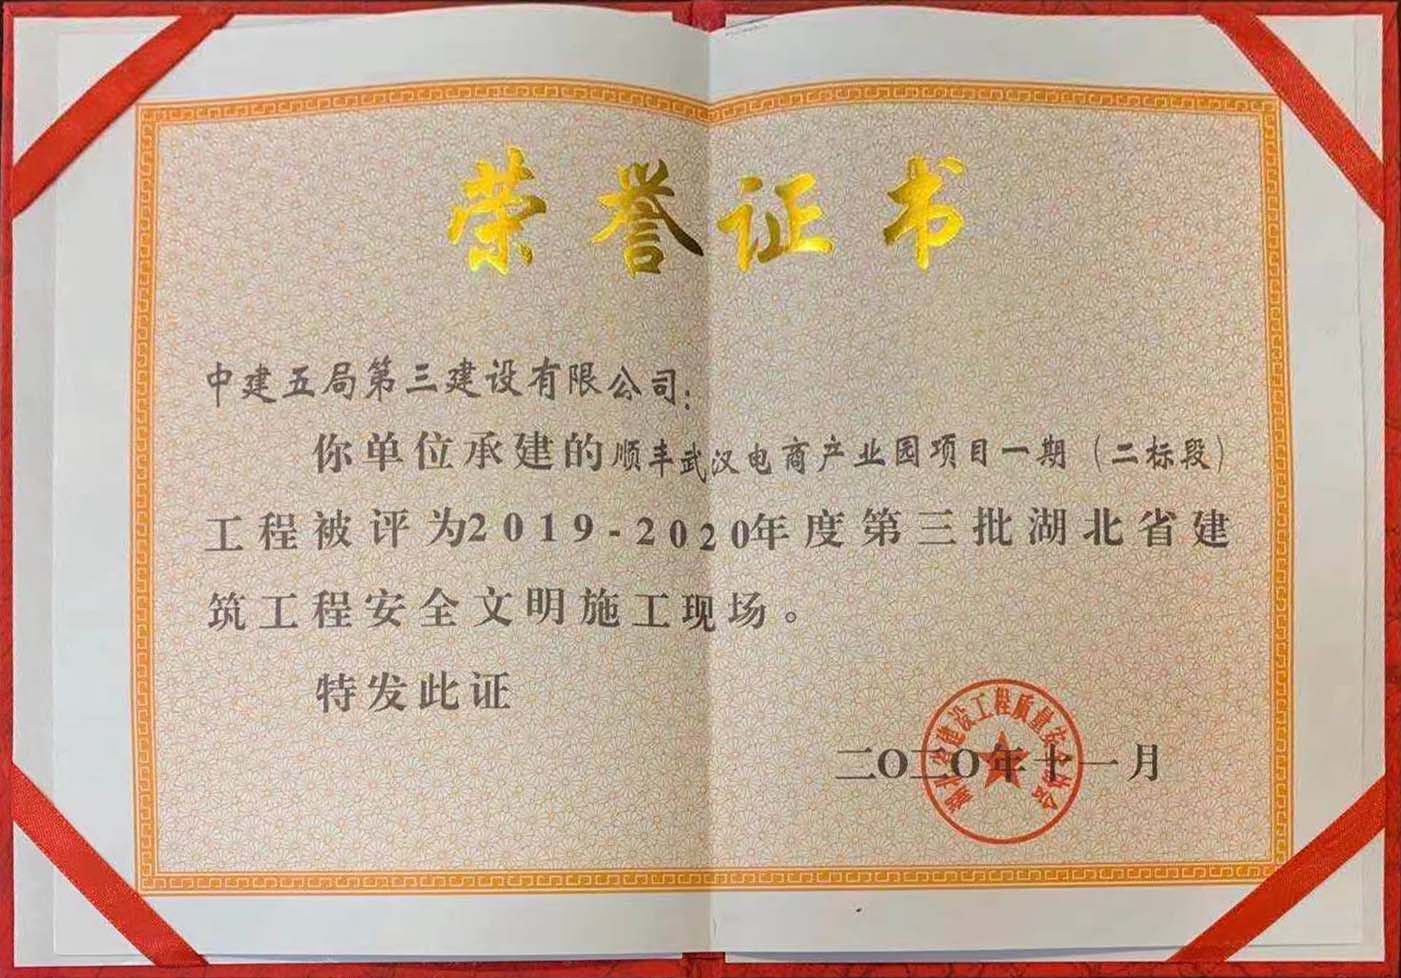 荣誉证书
中建五局第三建设有限公司:
你单位承建的顺丰武汉电商产业园项目一期（二标段）
工程被评为2019-2020年度第三批湖北省建
筑工程安全文明施工现场。
特发此证
湖北省建设工程质量安全协会
二〇二〇年十一月